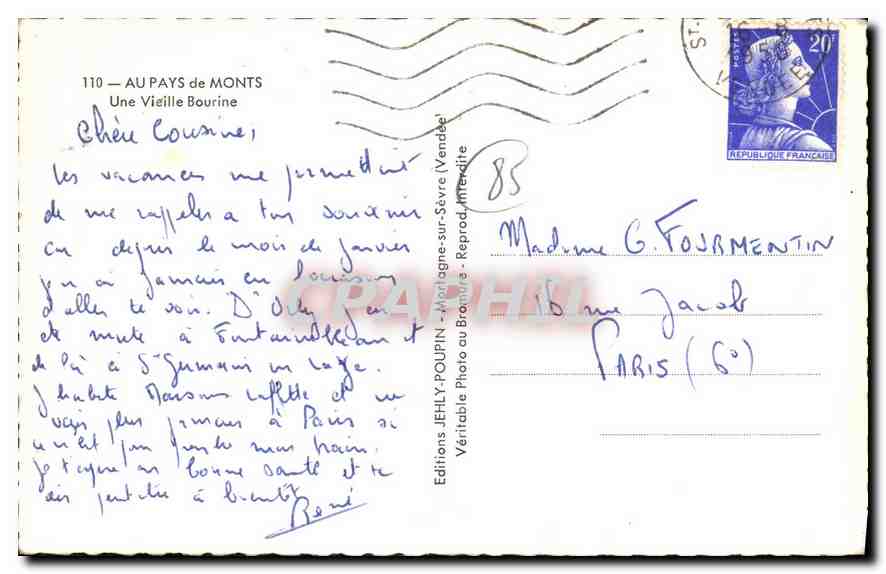 110 — AU PAYS de MONTS
Une Vieille Bourine
Chère Cousine,
Les vacances me permettent
de me rappeler a ton souvenir
car depuis le mois de Janvier
je n'ai jamais eu l'occasion
d'aller te voir. D'Orly j'ai
été muté à Fontainebleau et
de là à St Germain en Laye.
J'habite Maisons Laffitte et ne
vais plus jamais à Paris si
ce n'est pour prendre mon train.
Je t'espère en bonne santé et te
dis peut être à bientôt
René
Editions JEHLY-POUPIN - Mortagne-sur-Sèvre (Vendée)
Véritable Photo au Bromure - Reprod. Interdite
85
POSTES
20F
REPUBLIQUE FRANÇAISE
ST
Madame G. FOURMENTIN
16 rue Jacob
PARIS (6°)
CPAPHIL